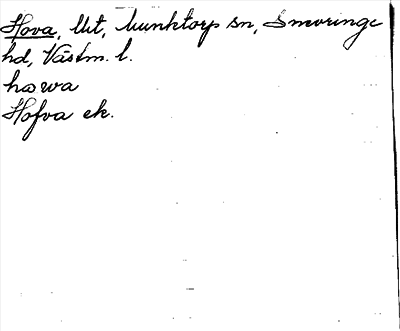 Hova, Utt, Munktorp sn, Snevringe
hd, Västm. l.
howa
Hofva ek.